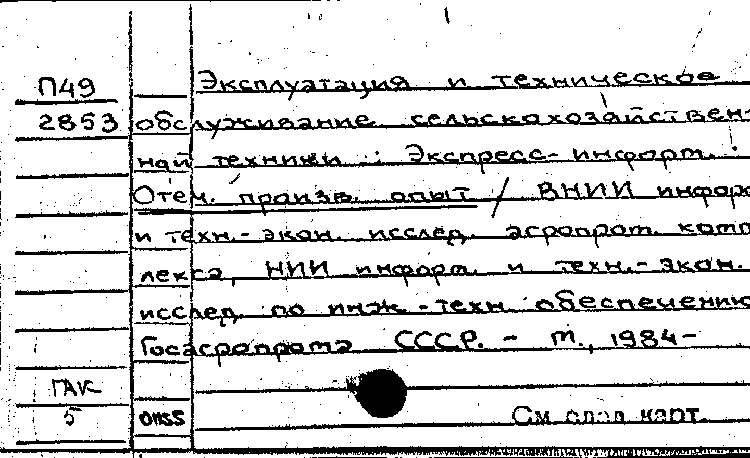 П49 Эксплуатация и техническое
2853 обслуживание сельскохозяйствен-
ной техники : Экспресс-информ. :
Отеч. произв. опыт / ВНИИ информ.
и техн.-экон. исслед. агропром. комп
лекса, НИИ информ. и техн.-экон.
исслед. по инж-техн обеспечению
Госагропрома СССР. - М., 1984-
ГАК
5 См. след. карт.